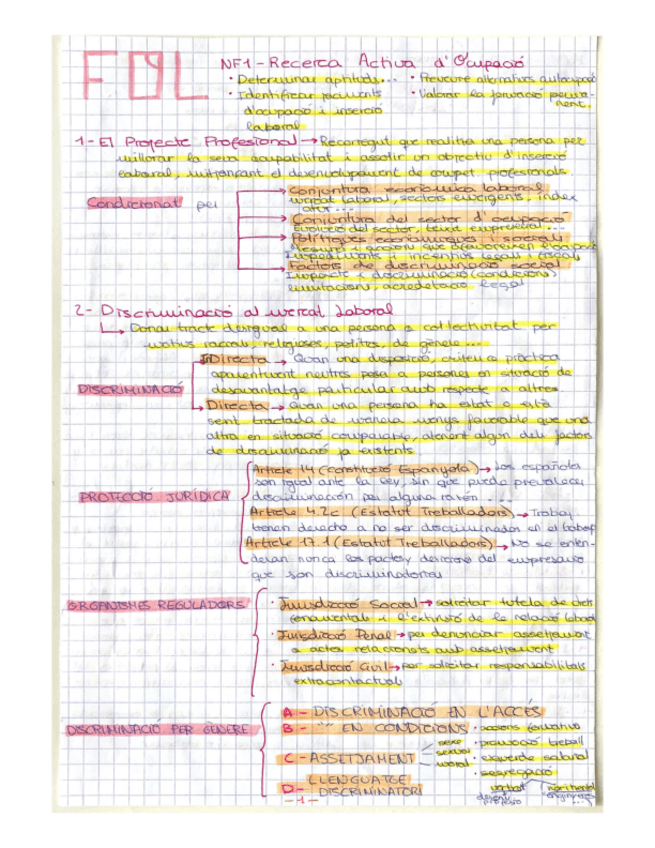 FOL
NF1 - Recerca Activa d'Ocupació
· Determinar aptituds... · Preveure alternatives autocupació
· Identificar jaciments · Valorar la formació perma-
nent.
d'ocupació i inserció
laboral
1- El Projecte Profesional → Recorregut que realitza una persona per
millorar la seva ocupabilitat i assolir un objectiu d'inserció
laboral, mitjançant el desenvolupament de competències profesionals.
Condicionat per
Conjuntura económica laboral
mercat laboral, sectors emergents, índex
atur...
Conjuntura del sector d'ocupació
Evolució del sector, teixit empresarial...
Polítiques econòmiques i socials
Mesures i accions que afavoreixen
Impediments i incentius legals i fiscals
Factors de discriminació social
Impacte discriminació (condicions)
limitacions acreditació legal
2- Discriminació al mercat Laboral
↳ Donar tracte desigual a una persona o col·lectivitat per
motius racials, religioses, polítics, de gènere...
DISCRIMINACIÓ
InDirecta → Quan una disposició, criteri o pràctica
aparentment neutres posa a persones en situació de
desavantatge particular amb respecte a altres
Directa → Quan una persona ha estat o està
sent tractada de manera menys favorable que una
altra en situació comparable, atenent algun dels factors
de discriminació ja existents.
PROTECCIÓ JURÍDICA
Article 14 (Constitució Espanyola) → Los españole
son igual ante la ley, sin que pueda prevalecer
discriminación por alguna razón ....
Article 4.2c (Estatut Treballadors) → Trabaj.
tienen derecho a no ser discriminados en el trabajo
Article 17.1 (Estatut Treballadors) → No se enten-
deran nunca los pactos y decisiones del empresario
que son discriminadores
ORGANISMES REGULADORS
· Jurisdicció Social → sol·licitar tutela de drets
fonamentals i l'extinció de la relació laboral
· Jurisdicció Penal → per denunciar assetjament
o actes relacionats amb assetjament
· Jurisdicció Civil → per sol·licitar responsabilitats
extracontactual
DISCRIMINACIÓ PER GÈNERE
A - DISCRIMINACIÓ EN L'ACCÉS
B - "" EN CONDICIONS · accions formatives
· promoció treball
C - ASSETJAMENT sexe sexual moral
· esquerda salarial
· segregació
D - LLENGUATGE
DISCRIMINATORI
vertical horitzontal
-1-